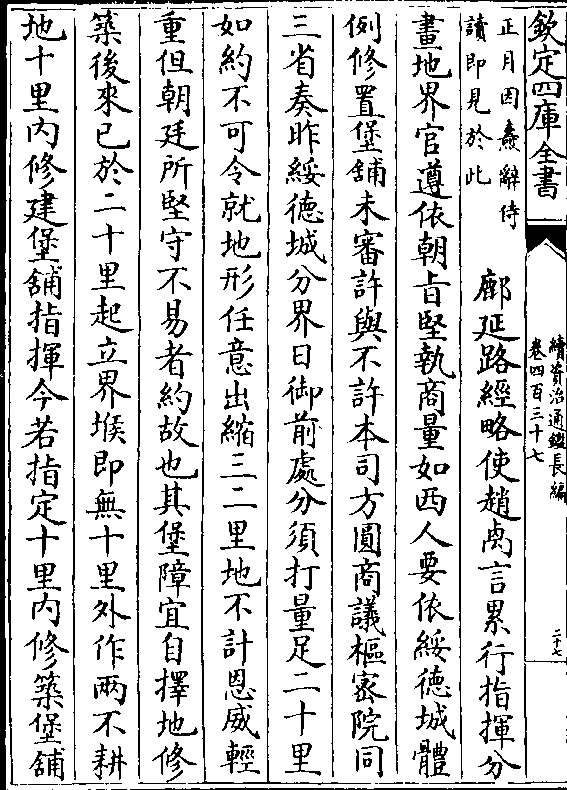 欽定四庫全書
續資治通鑑長編
卷四百三十七
二十七
正月因燾辭侍
讀即見於此
鄜延路經略使趙卨言累行指揮分
畫地界官遵依朝㫖堅執商量如西人要依綏德城體
例修置堡舖未審許與不許本司方圓商議樞密院同
三省奏昨綏德城分界日御前處分須打量足二十里
如約不可令就地形任意出縮三二里地不計恩威輕
重但朝廷所堅守不易者約故也其堡障宜自擇地修
築後來已於二十里起立界堠即無十里外作兩不耕
地十里内修建堡舖指揮今若指定十里内修築堡舖